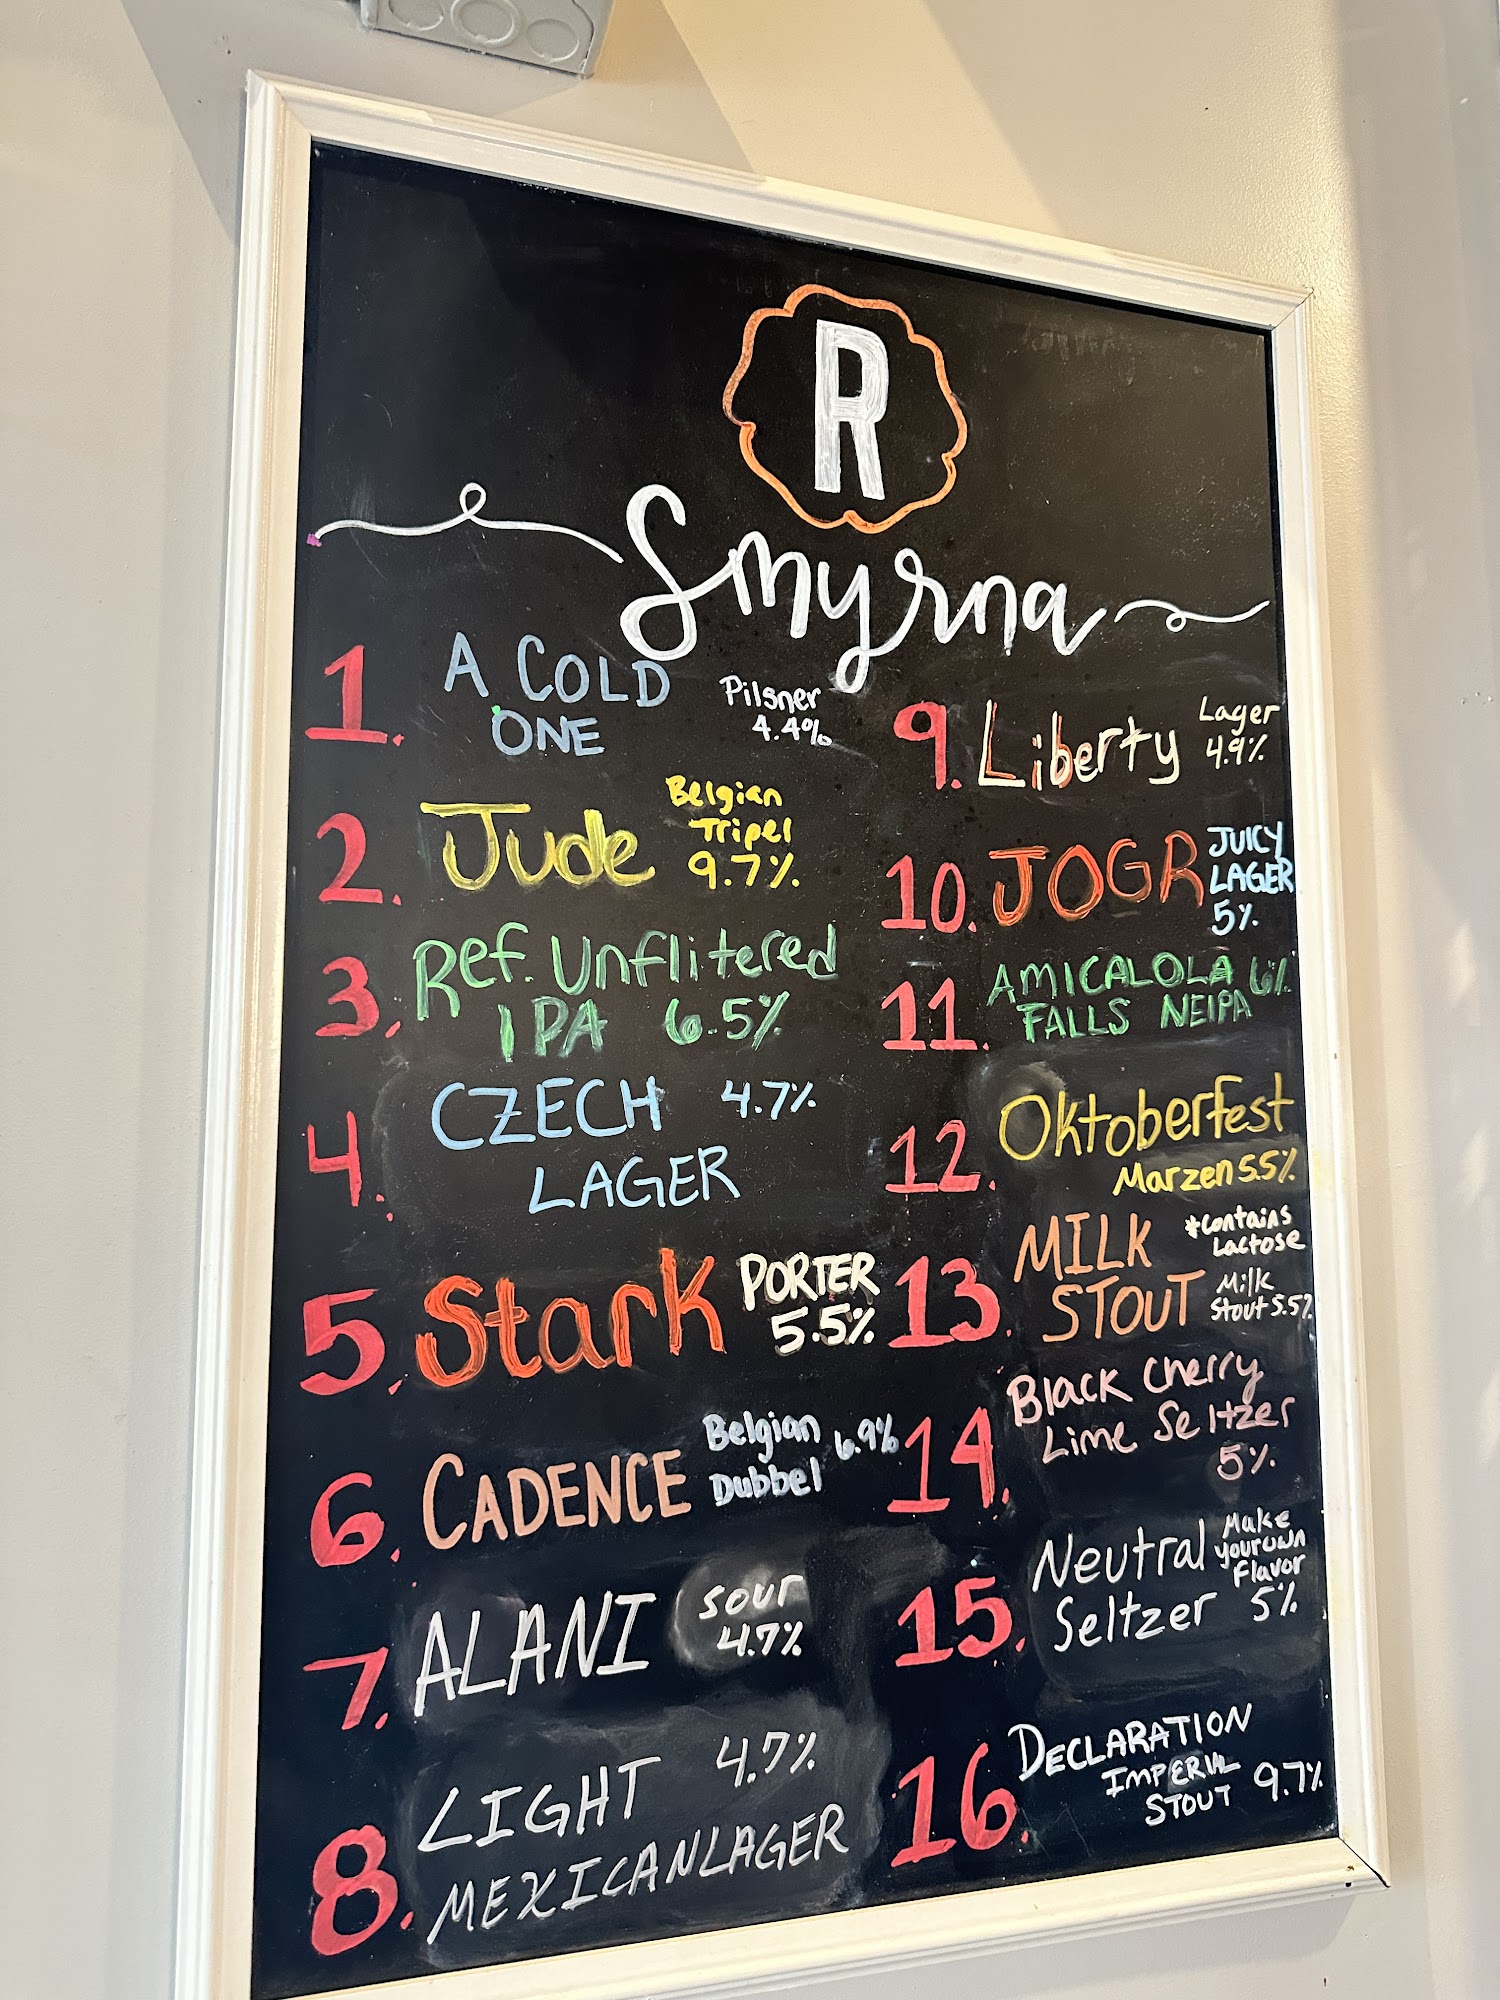 R
Smyrna
1. A COLD
ONE
Pilsner
4.4%
2. Jude
Belgian
Tripel
9.7%
3. Ref. Unflitered
IPA 6.5%
4. CZECH 4.7%
LAGER
5. Stark
PORTER
5.5%
6. CADENCE
Belgian 6.9%
Dubbel
7. ALANI
sour
4.7%
8. LIGHT 4.7%
MEXICAN LAGER
9. Liberty
Lager
4.9%
10. JOGR
JUICY
LAGER
5%
11. AMICALOLA 6%
FALLS NEIPA
12. Oktoberfest
Marzen 5.5%
13. MILK
STOUT
*contains
Lactose
Milk
Stout 5.5%
14. Black Cherry
Lime Seltzer
5%
15. Neutral
Seltzer
Make
your own
Flavor
5%
16. DECLARATION
IMPERIAL
STOUT 9.7%